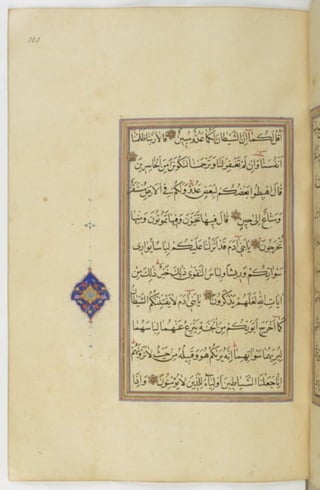 أقل لكما إن الشيطان لكما عدو مبين قالا ربنا ظلمنا
أنفسنا وإن لم تغفر لنا وترحمنا لنكونن من الخاسرين
قال اهبطوا بعضكم لبعض عدو ولكم في الأرض مستقر
ومتاع إلى حين قال فيها تحيون وفيها تموتون ومنها
تخرجون يا بني آدم قد أنزلنا عليكم لباسا يواري
سوآتكم وريشا ولباس التقوى ذلك خير ذلك من
آيات الله لعلهم يذكرون يا بني آدم لا يفتننكم الشيطان
كما أخرج أبويكم من الجنة ينزع عنهما لباسهما
ليريهما سوآتهما إنه يراكم هو وقبيله من حيث لا ترونهم
إنا جعلنا الشياطين أولياء للذين لا يؤمنون وإذا